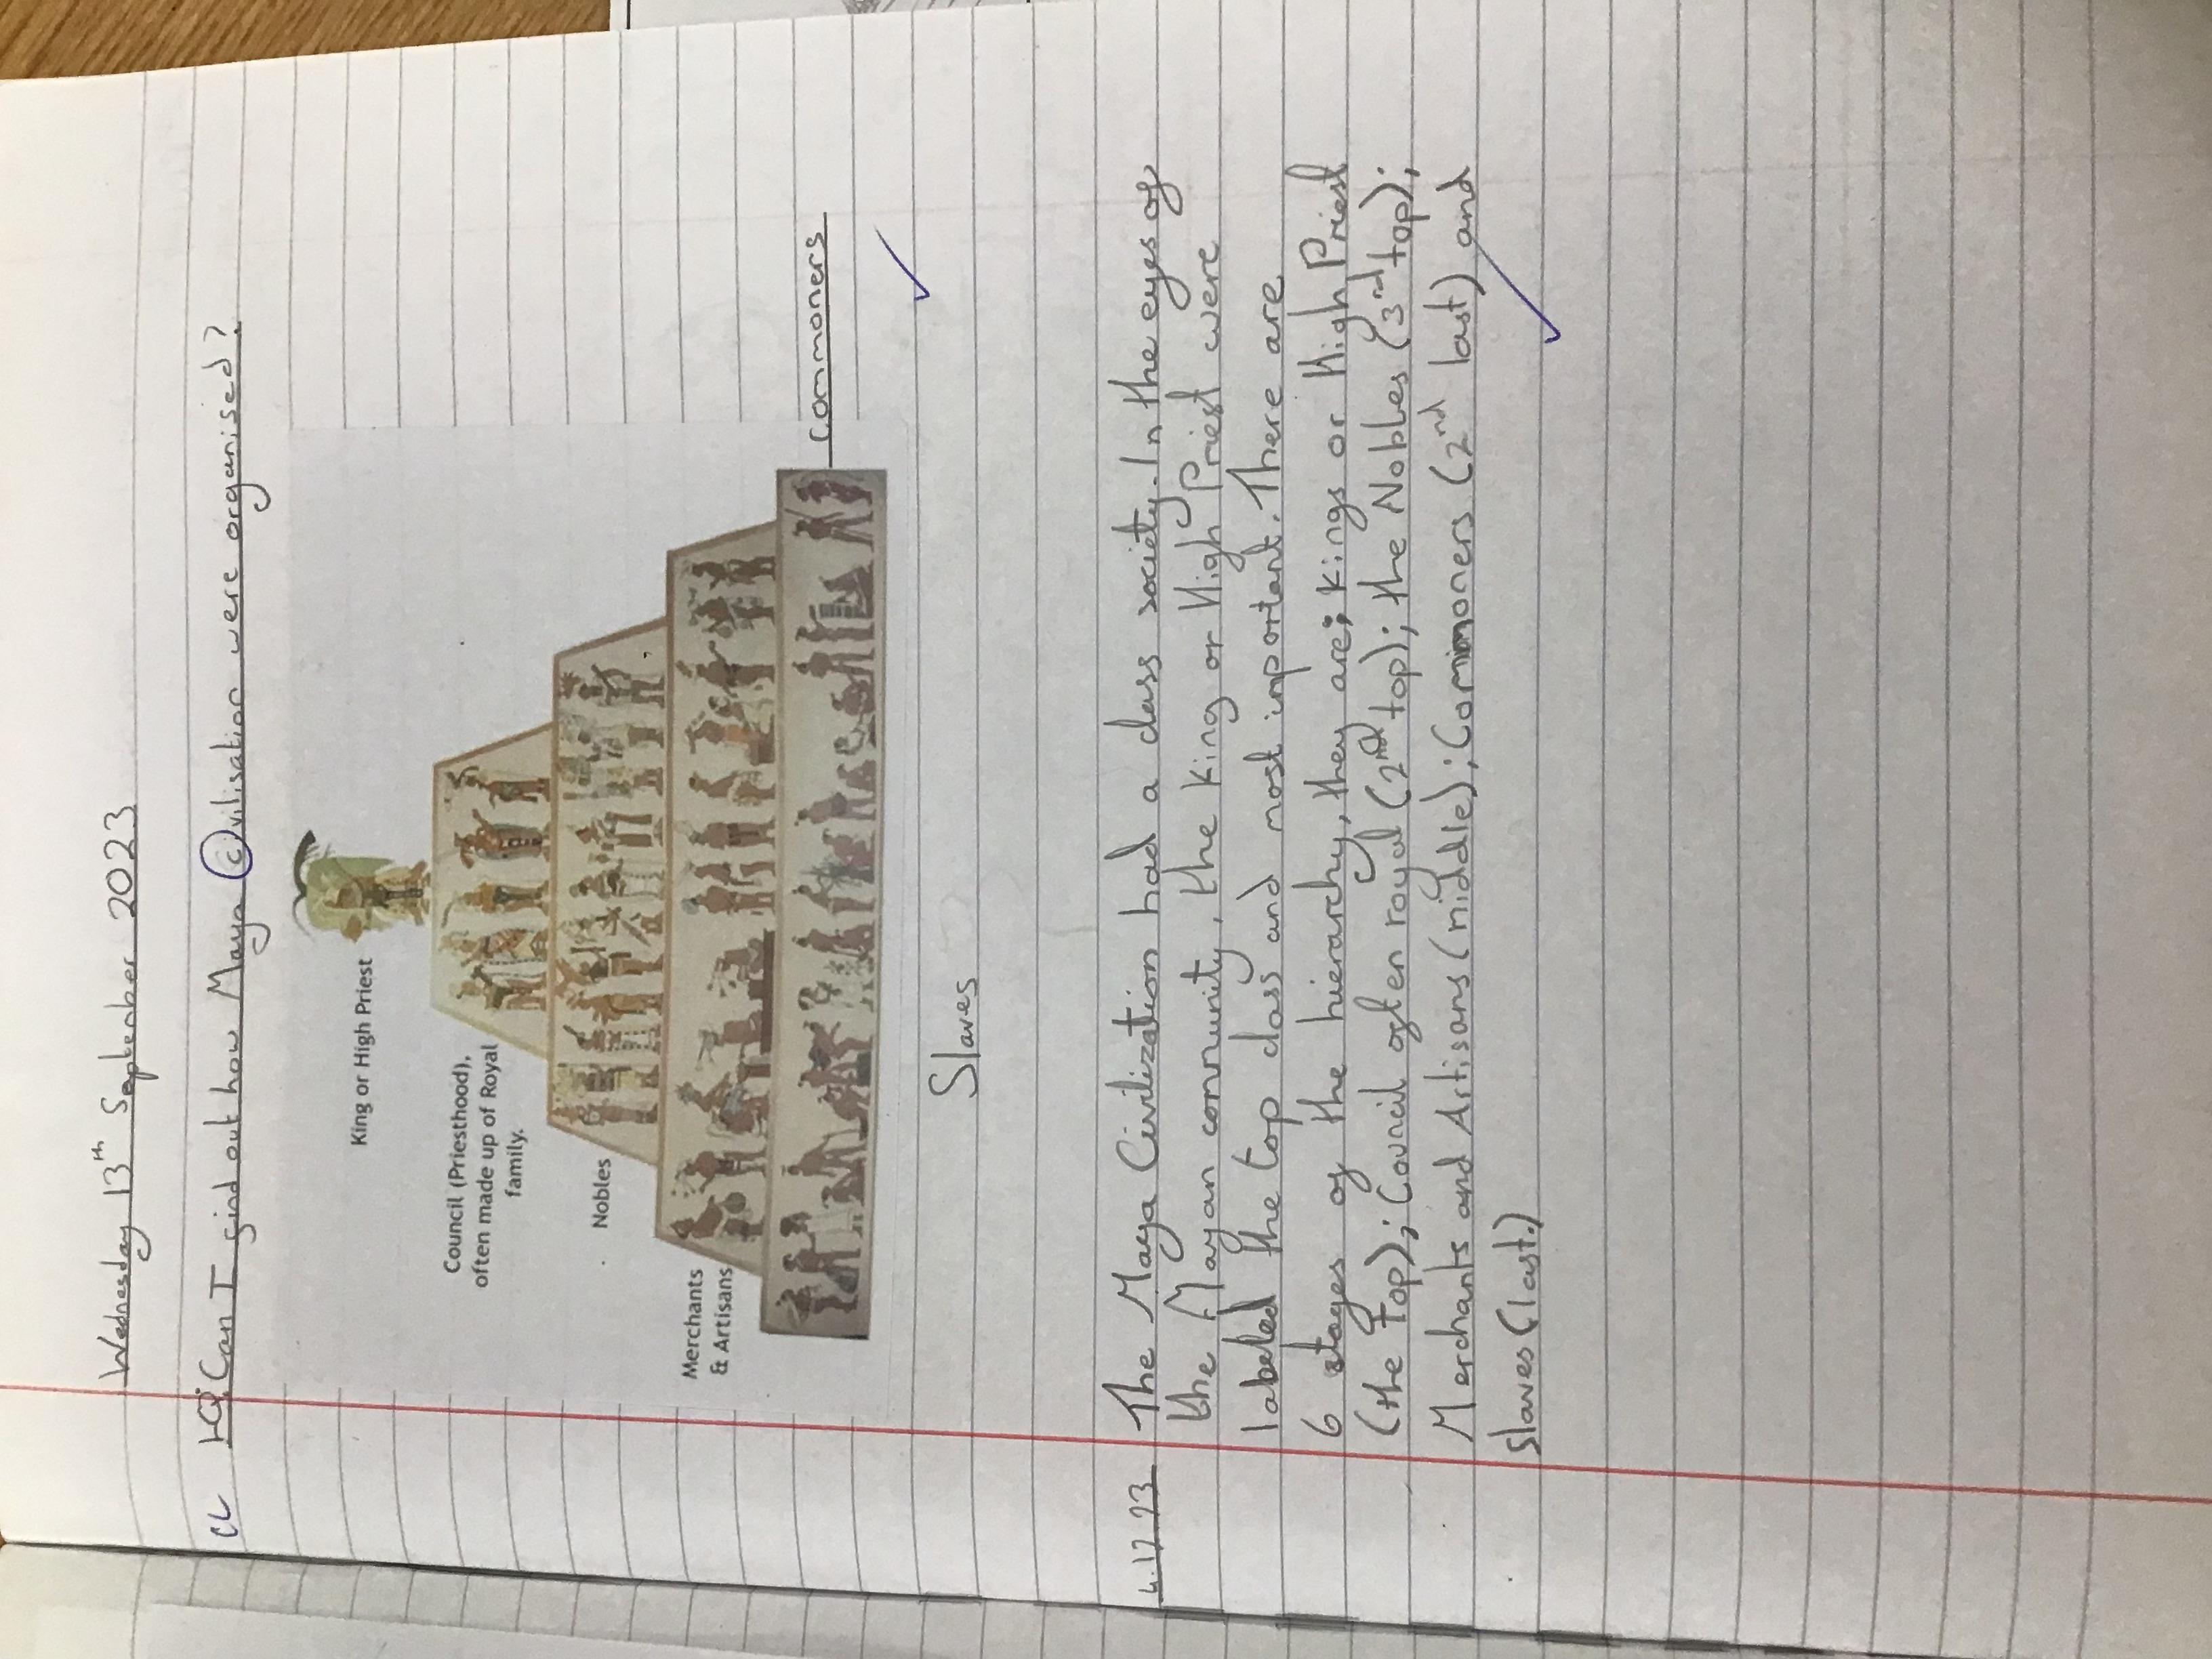 Wednesday 13th September 2023
CL LQ: Can I find out how Maya civilisation were organised?
King or High Priest
Council (Priesthood),
often made up of Royal
family.
Nobles
Merchants
& Artisans
Commoners
Slaves
The Maya Civilization had a class society. In the eyes of
the Mayan community, the King or High Priest were
labeled the top class and most important. There are
6 stages of the hierarchy, they are; kings or High Priest
(the Top); Council often royal (2nd top); the Nobles (3rd top);
Merchants and Artisans (middle); Commoners (2nd last) and
slaves (last.)